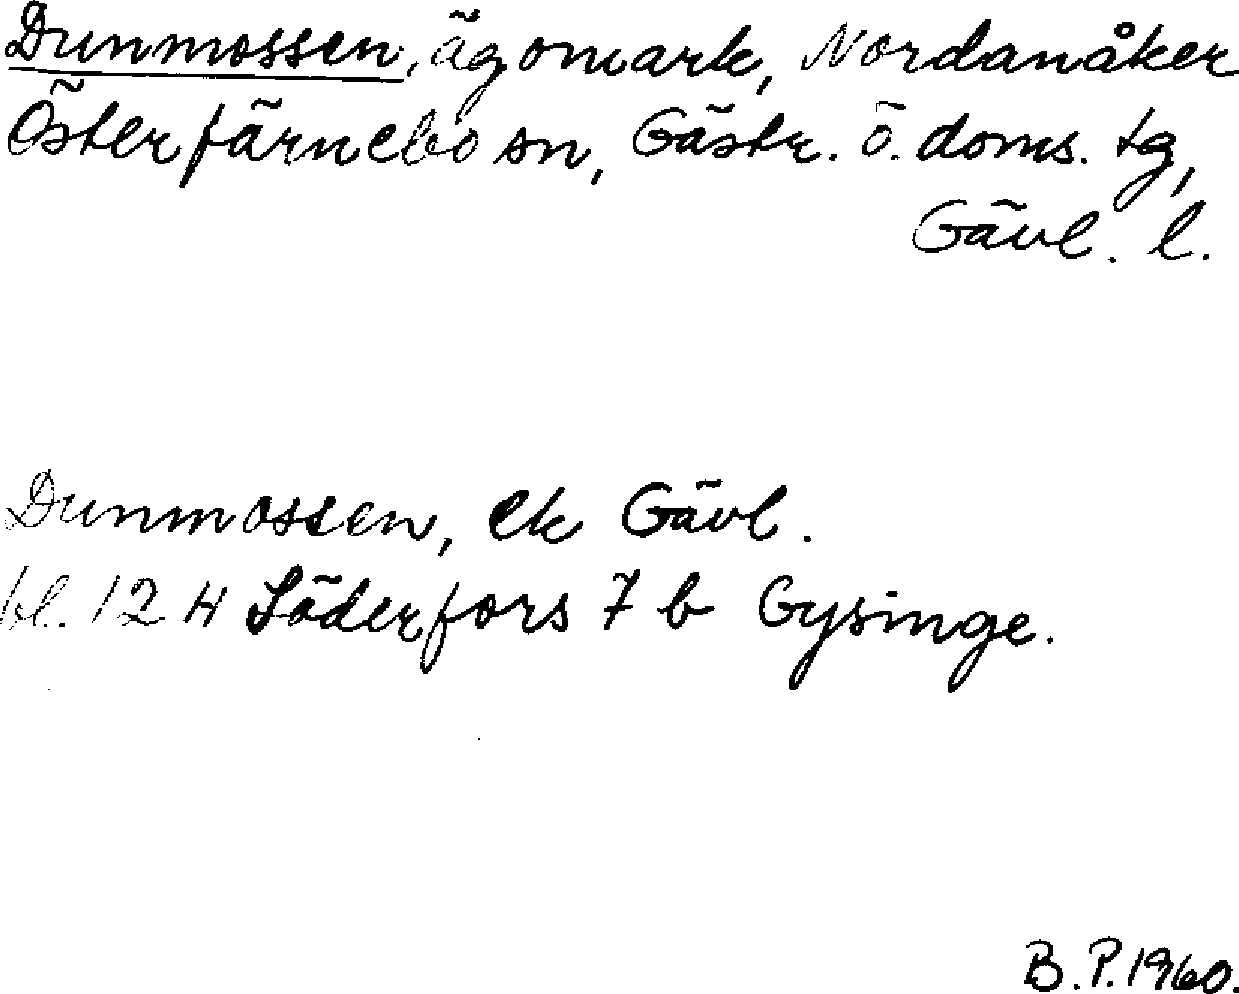 Dunmossen, ägomark, Nordanåker
Österfärnebo sn, Gästr. ö. doms. tg,
Gävl. l.
Dunmossen, ek Gävl.
bl. 12 H Söderfors 7 b Gysinge.
B.P. 1960.